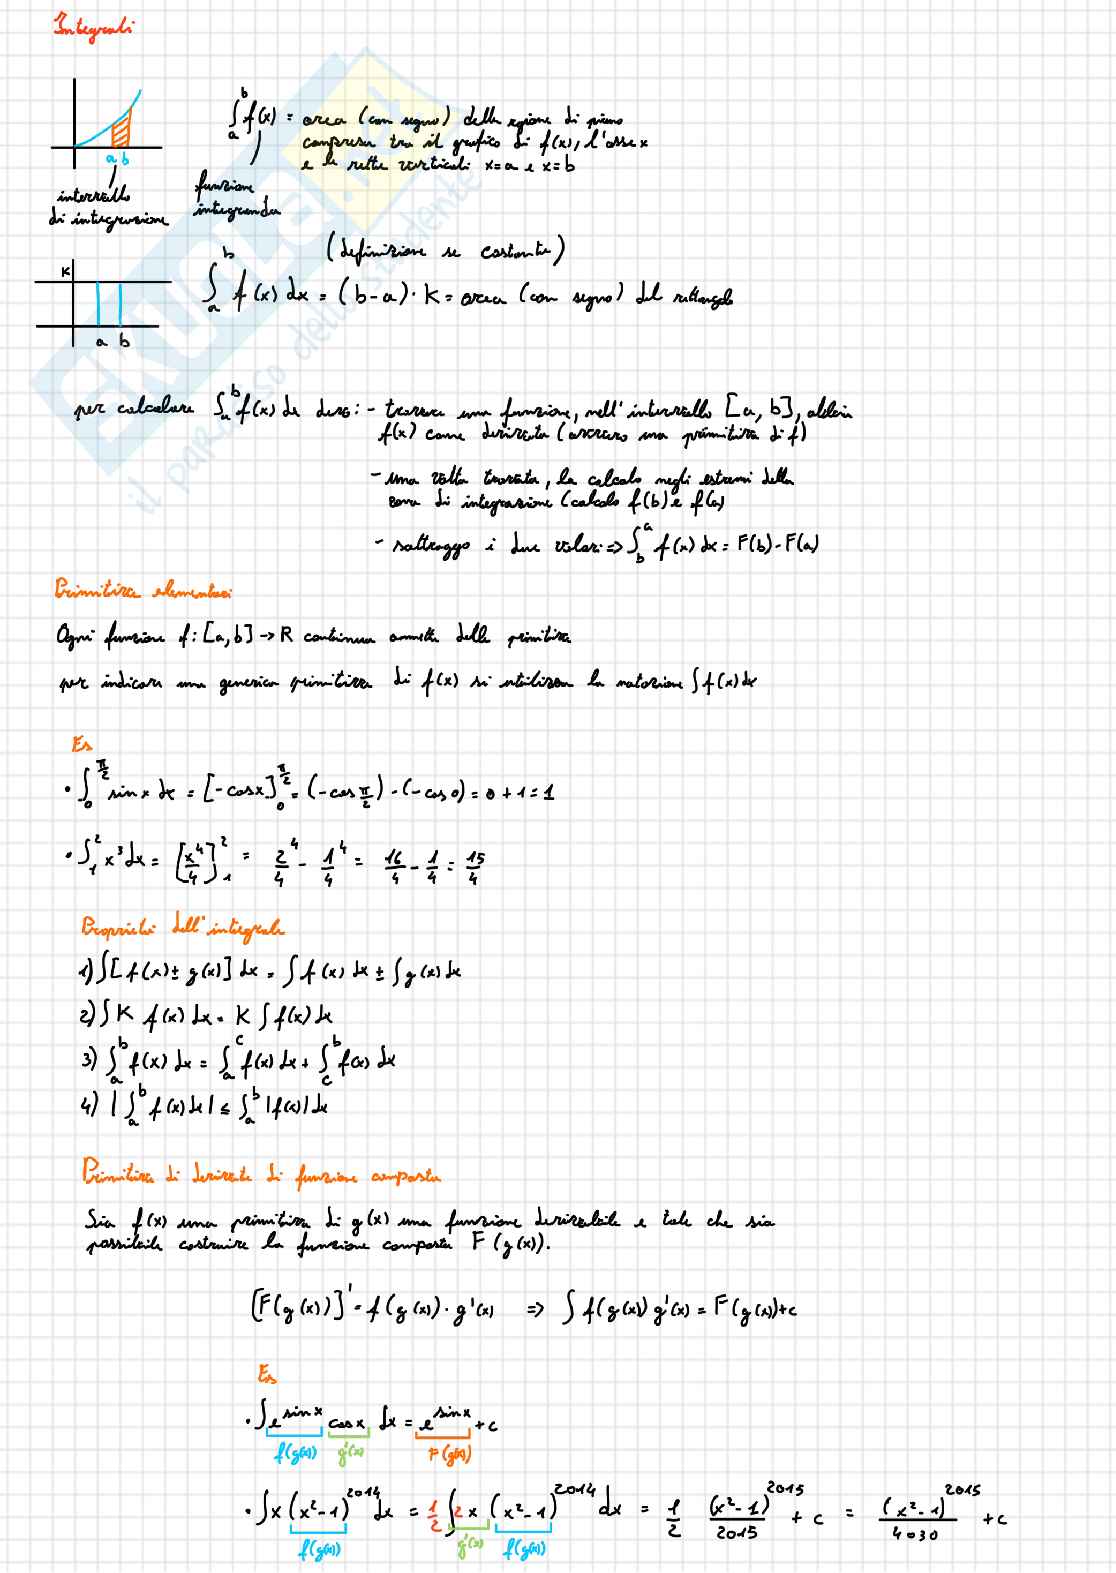 Integrali
∫ₐᵇ f(x) = area (con segno) della regione di piano
compresa tra il grafico di f(x), l'asse x
e le rette verticali x=a e x=b
a b
intervallo
di integrazione
funzione
integranda
(definizione se costante)
K
∫ₐᵇ f(x) dx = (b-a)·K = area (con segno) del rettangolo
a b
per calcolare ∫ₐᵇ f(x) dx devo: - trovare una funzione, nell'intervallo [a, b], abbia
f(x) come derivata (ovvero una primitiva di f)
- una volta trovata, la calcolo negli estremi della
zona di integrazione (calcolo f(b) e f(a)
- sottraggo i due valori => ∫_b^a f(x) dx = F(b) - F(a)
Primitiva elementari
Ogni funzione f: [a, b] -> R continua ammette delle primitive
per indicare una generica primitiva di f(x) si utilizza la notazione ∫ f(x) dx
Es
• ∫_0^{π/2} sin x dx = [-cos x]_0^{π/2} = (-cos π/2) - (-cos 0) = 0 + 1 = 1
• ∫_1^2 x³ dx = [x⁴/4]_1^2 = 2⁴/4 - 1⁴/4 = 16/4 - 1/4 = 15/4
Proprietà dell'integrale
1) ∫[f(x) ± g(x)] dx = ∫ f(x) dx ± ∫ g(x) dx
2) ∫ K f(x) dx = K ∫ f(x) dx
3) ∫_a^b f(x) dx = ∫_a^c f(x) dx + ∫_c^b f(x) dx
4) |∫_a^b f(x) dx| ≤ ∫_a^b |f(x)| dx
Primitiva di derivate di funzione composta
Sia f(x) una primitiva di g(x) una funzione derivabile e tale che sia
possibile costruire la funzione composta F(g(x)).
[F(g(x))]' = f(g(x))·g'(x) => ∫ f(g(x)) g'(x) = F(g(x)) + c
Es
• ∫ e^{sin x} cos x dx = e^{sin x} + c
f(g(x)) g'(x) F(g(x))
• ∫ x (x²-1)^{2014} dx = 1/2 ∫ 2x (x²-1)^{2014} dx = 1/2 (x²-1)^{2015}/2015 + c = (x²-1)^{2015}/4030 + c
f(g(x)) g'(x) f(g(x))